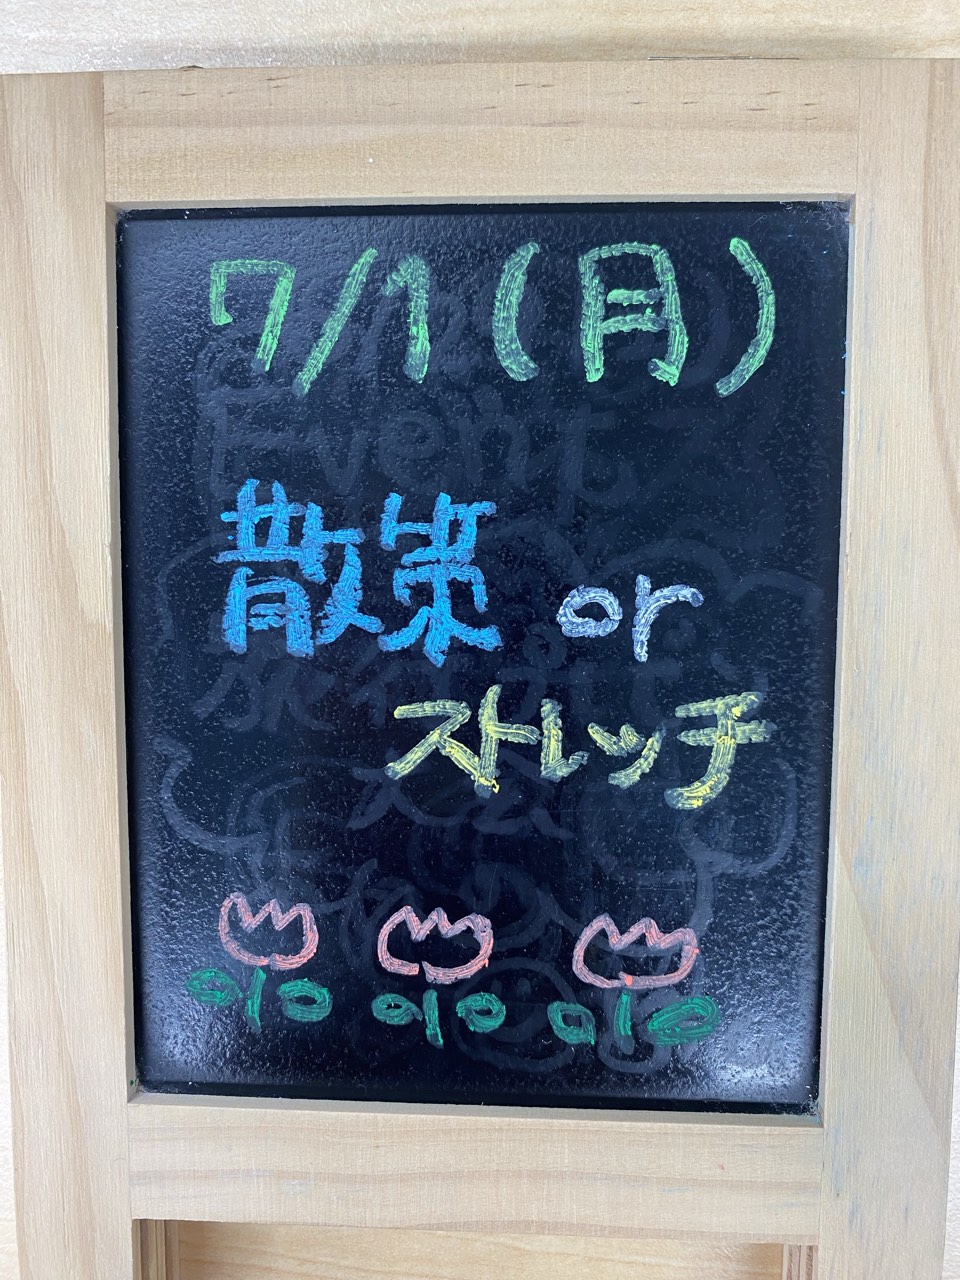 7/1(月)
Event
散策 or
ストレッチ